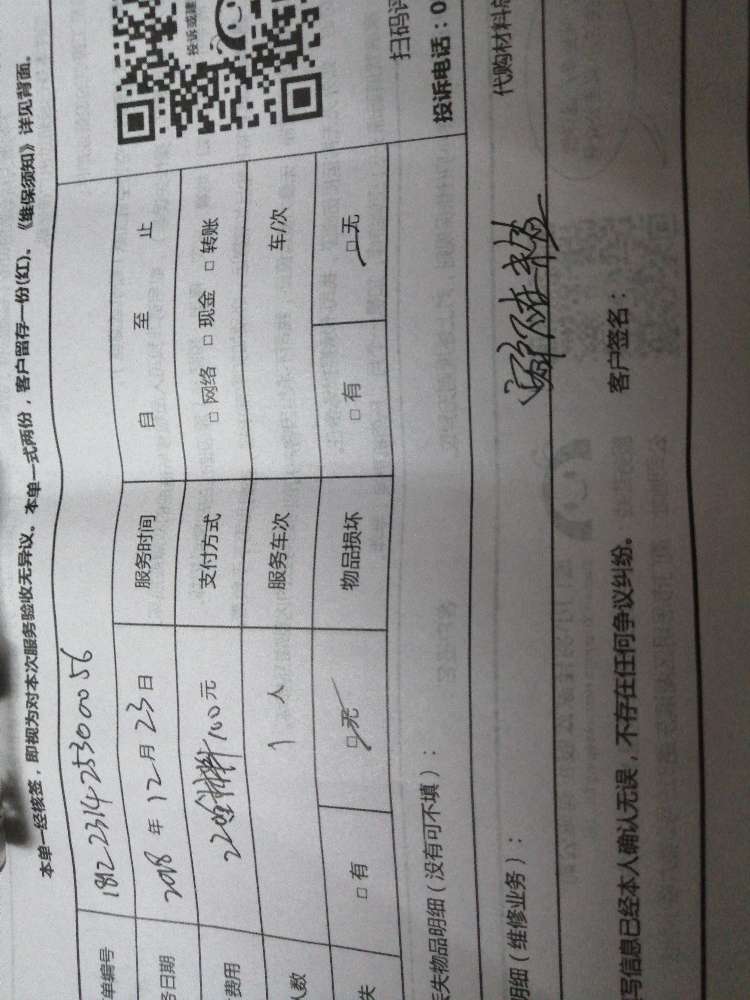 本单一经核签，即视为对本次服务验收无异议。本单一式两份，客户留存一份(红)。《维保须知》详见背面。
单编号 1812231425300056
务日期 2018 年 12 月 23 日 服务时间 自 至 止
费用 220 材料100元 支付方式 □ 网络 □ 现金 □ 转账
人数 1 人 服务车次 车/次
失 □ 有 □ 无 物品损坏 □ 有 □ 无
投诉或建
扫码评
投诉电话：0
失物品明细（没有可不填）：
明细（维修业务）：
代购材料总
写信息已经本人确认无误，不存在任何争议纠纷。 客户签名：